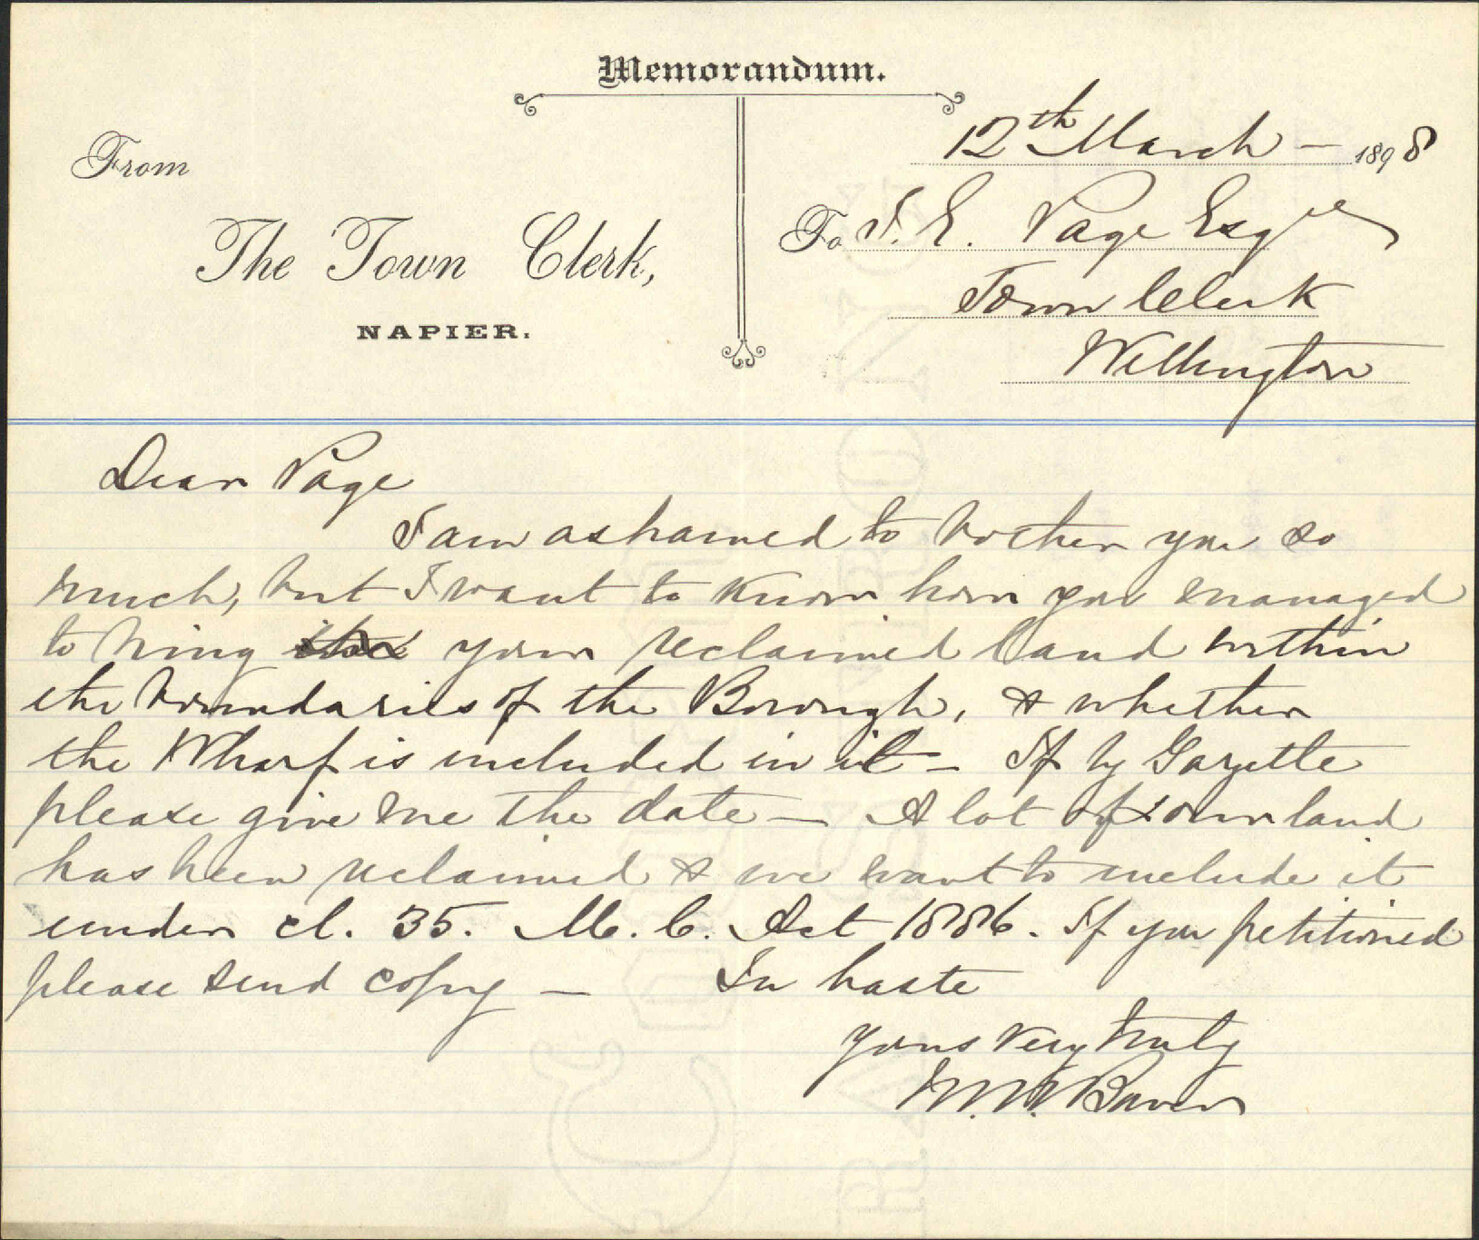 Memorandum.
12th March – 1898
From
To J. E. Page Esqre
The Town Clerk,
Town Clerk
NAPIER.
Wellington
Dear Page
I am ashamed to bother you so
much, but I want to know how you managed
to bring your reclaimed land within
the boundaries of the Borough, & whether
the Wharf is included in it – If by Gazette
please give me the date – A lot of our land
has been reclaimed & we want to include it
under cl. 35. M. C. Act 1886. If you petitioned
please send copy – In haste
Yours very truly